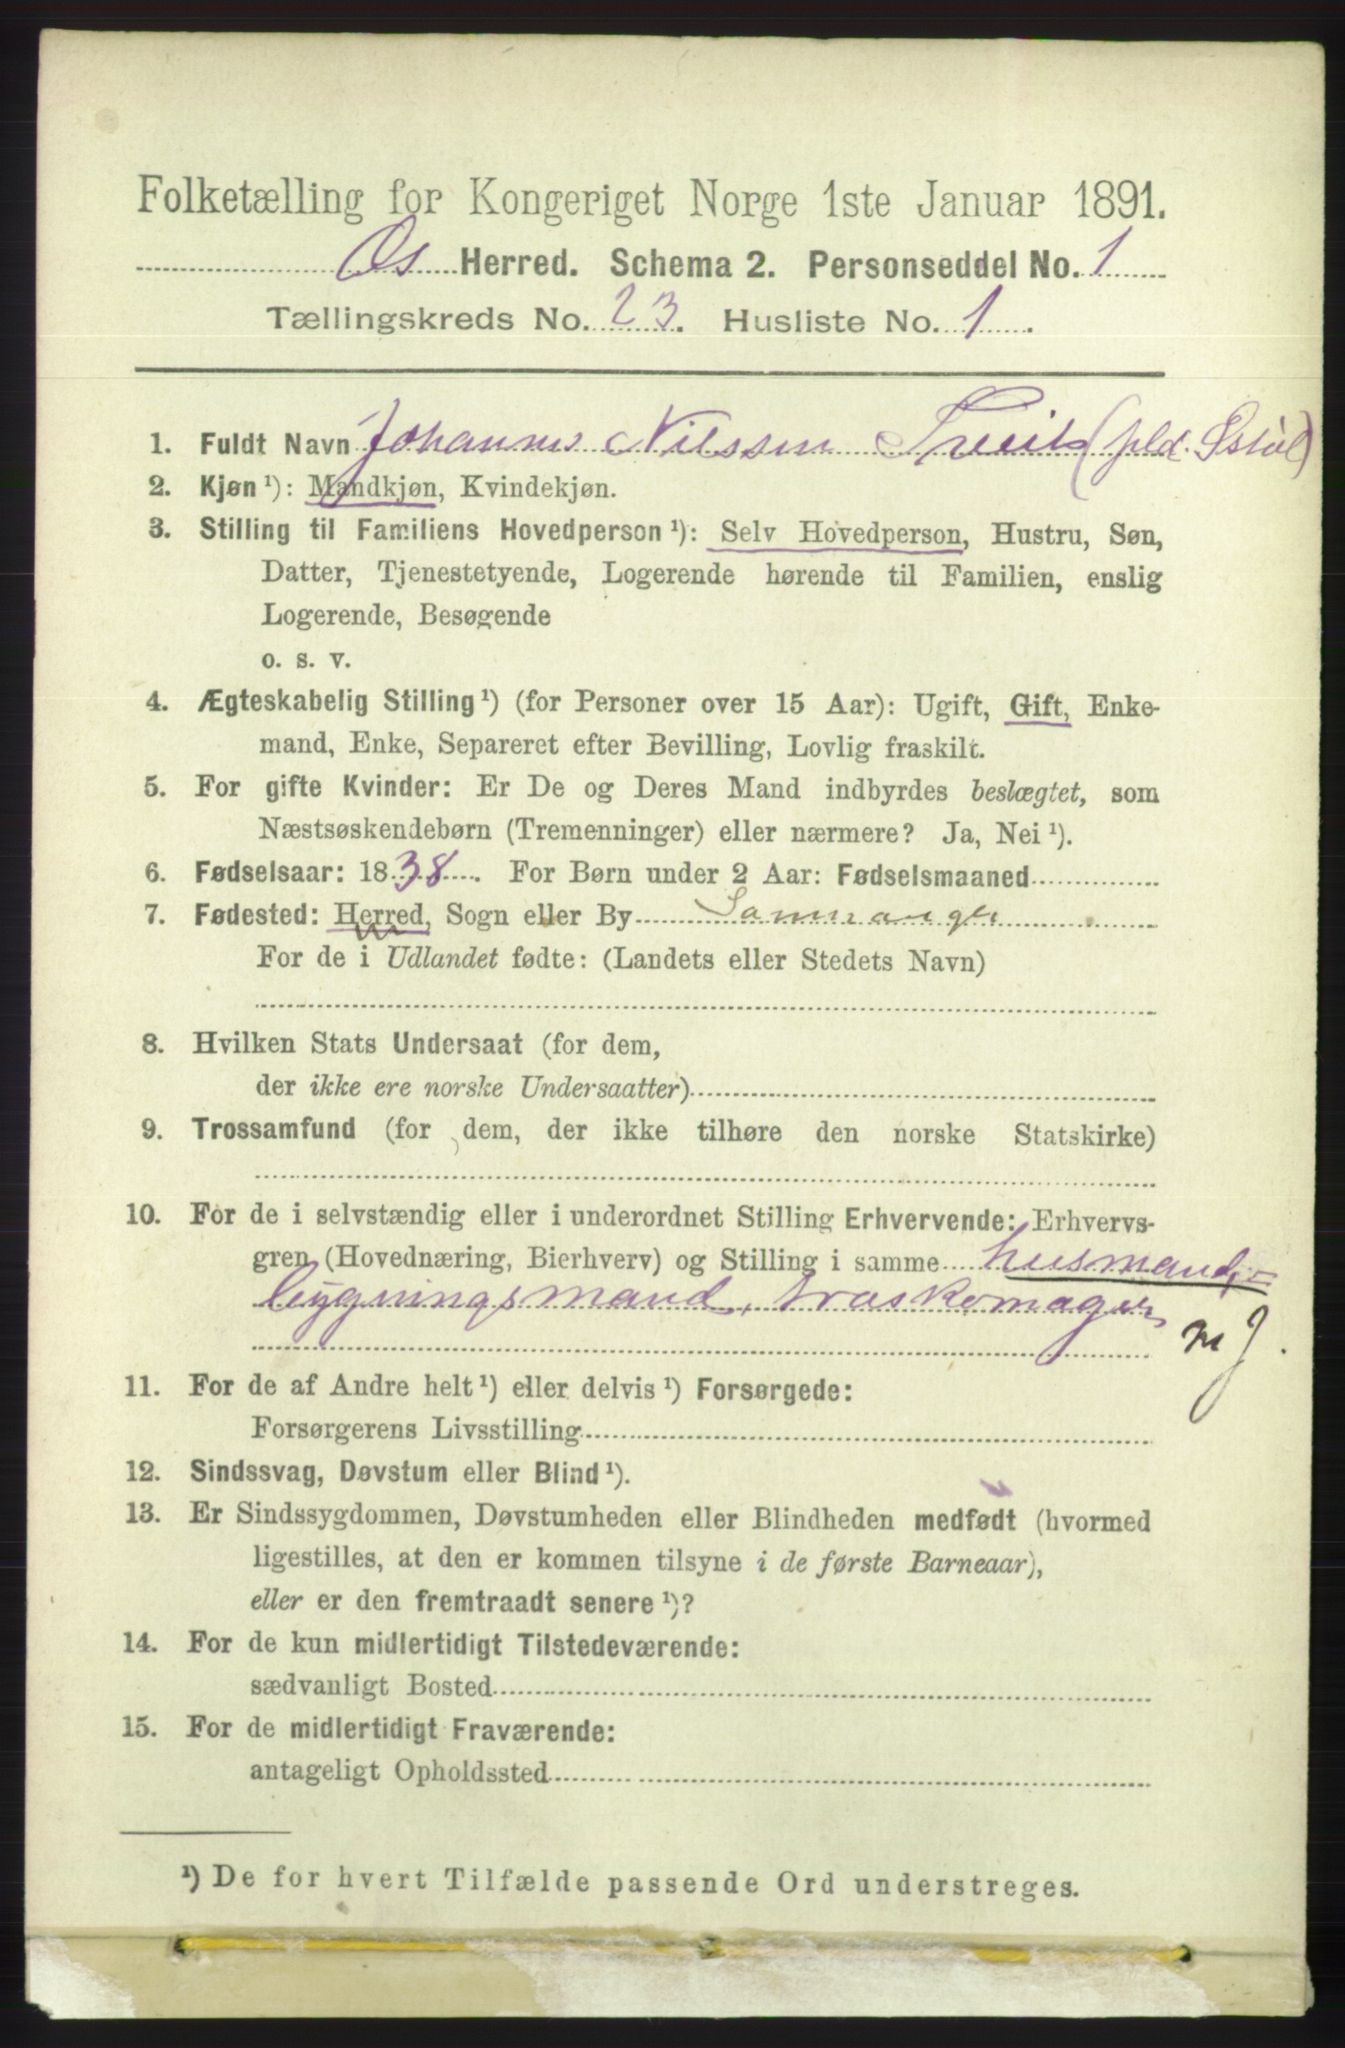 Folketælling for Kongeriget Norge 1ste Januar 1891.
Os Herred. Schema 2. Personseddel No. 1
Tællingskreds No. 23. Husliste No. 1.
1. Fuldt Navn Johannes Nilssen
2. Kjøn ¹): Mandkjøn, Kvindekjøn.
3. Stilling til Familiens Hovedperson ¹): Selv Hovedperson, Hustru, Søn,
Datter, Tjenestetyende, Logerende hørende til Familien, enslig
Logerende, Besøgende
o. s. v.
4. Ægteskabelig Stilling ¹) (for Personer over 15 Aar): Ugift, Gift, Enke-
mand, Enke, Separeret efter Bevilling, Lovlig fraskilt.
5. For gifte Kvinder: Er De og Deres Mand indbyrdes beslægtet, som
Næstsøskendebørn (Tremenninger) eller nærmere? Ja, Nei ¹).
6. Fødselsaar: 1838. For Børn under 2 Aar: Fødselsmaaned
7. Fødested: Herred, Sogn eller By Sammanger
For de i Udlandet fødte: (Landets eller Stedets Navn)
8. Hvilken Stats Undersaat (for dem,
der ikke ere norske Undersaatter)
9. Trossamfund (for dem, der ikke tilhøre den norske Statskirke)
10. For de i selvstændig eller i underordnet Stilling Erhvervende: Erhvervs-
gren (Hovednæring, Bierhverv) og Stilling i samme husmand,
bygningsmand, træskomager
11. For de af Andre helt ¹) eller delvis ¹) Forsørgede:
Forsørgerens Livsstilling
12. Sindssvag, Døvstum eller Blind ¹).
13. Er Sindssygdommen, Døvstumheden eller Blindheden medfødt (hvormed
ligestilles, at den er kommen tilsyne i de første Barneaar),
eller er den fremtraadt senere ¹)?
14. For de kun midlertidigt Tilstedeværende:
sædvanligt Bosted
15. For de midlertidigt Fraværende:
antageligt Opholdssted
¹) De for hvert Tilfælde passende Ord understreges.